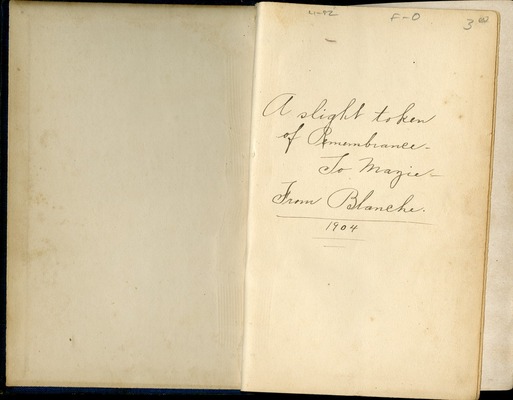 4-82
F-O
3 00
A slight token
of Remembrance-
To Mazie-
From Blanche.
1904